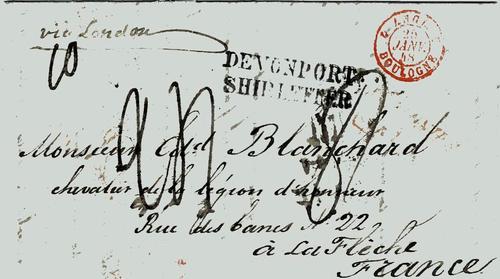 via London
DEVONPORT
SHIP LETTER
ANGL.
BOULOGNE
10
Monsieur Edd Blanchard
chevalier de la légion d'honneur
Rue des bancs No 22
à La Flèche
France